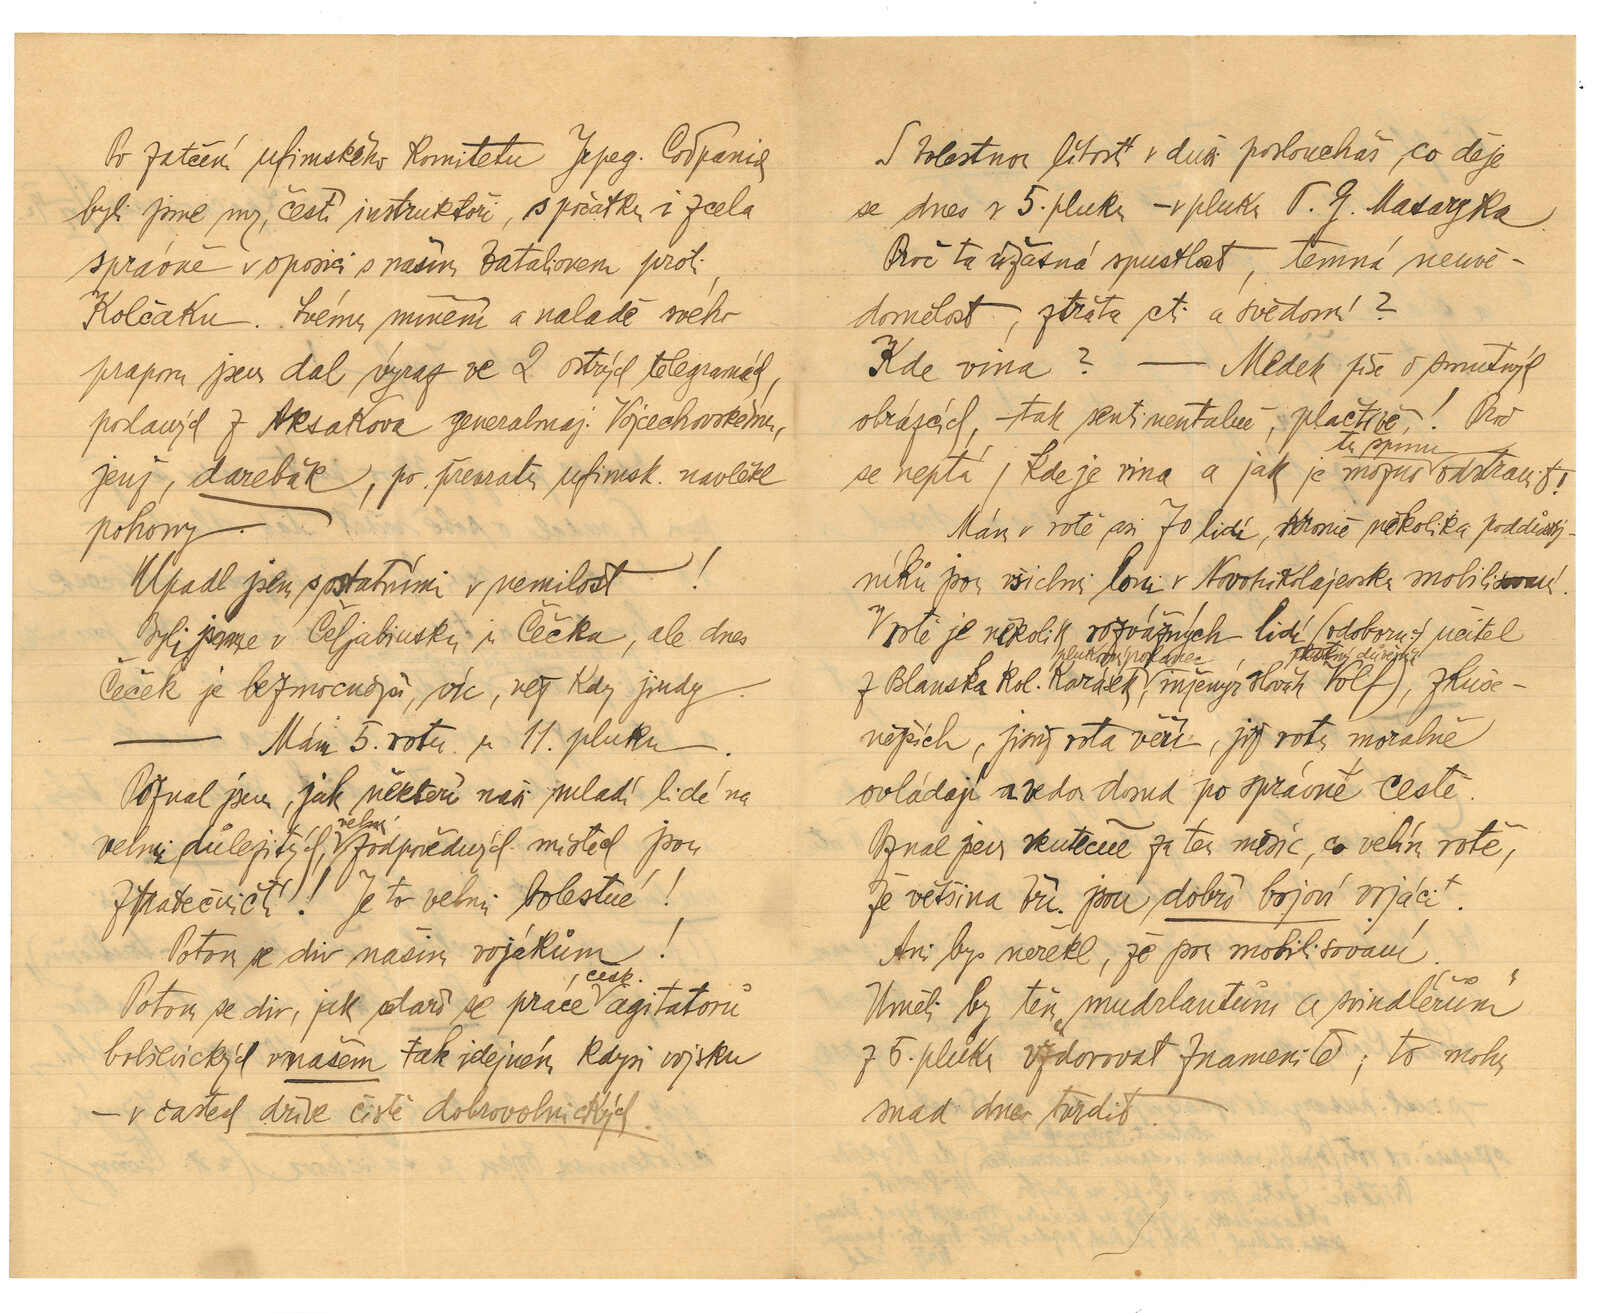 Po zatčení ufimského Komitetu Учред. Собрания
byli jsme my, čeští instruktoři, s počátku i zcela
správně v oposici s naším batalionem proti
Kolčaku. Svému mínění a náladě svého
praporu jsem dal výraz ve 2 ostrých telegramech,
poslaných z Aksakova generalmaj. Vojcechovskému,
jenž, darebák, po převratu ufimsk. navlékl
pohony.
Upadl jsem s ostatními v nemilost!
Byli jsme v Čeljabinsku u Čečka, ale dnes
Čeček je bezmocnější, víc, než kdy jindy.
— Mám 5. rotu u 11. pluku.
Poznal jsem, jak někteří naši mladí lidé na
velmi důležitých, velmi zodpovědných místech jsou
zbabělí! Je to velmi bolestné!
Potom se div našim vojákům!
Potom se div, jak daří se práce česk. agitatorů
bolševických v našem tak idejném kdysi vojsku
– v částech dříve čistě dobrovolnických.
S bolestnou lítostí v duši posloucháš, co děje
se dnes v 5. pluku – v pluku T. G. Masaryka.
Proč ta úžasná spustlost, temná neuvě-
domělost, ztráta cti a svědomí?
Kde vina? — Medek píše o smutných
obrázcích, – tak sentimentalně, plačtivě! Proč
se neptá, kde je vina a jak je možno tu špínu odstranit!
Mám v rotě asi 70 lidí, kromě několika poddůstoj-
níků jsou všichni loni v Novonikolajevsku mobilisovaní.
V rotě je několik rozvážných lidí (odborný učitel
z Blanska Kol. Karásek, plukovní poslanec, inženýr Slovák Volf), zkuše-
nějších, jimž rota věří, již rotu morálně
ovládají a vedou dosud po správné cestě.
Poznal jsem skutečně za ten měsíc, co velím rotě,
že většina bří. jsou dobří bojoví vojáci.
Ani bys neřekl, že jsou mobilisovaní.
Uměli by těm „mudrlantům a švindlérům"
z 5. pluku vzdorovat znamenitě; to mohu
snad dnes tvrdit.